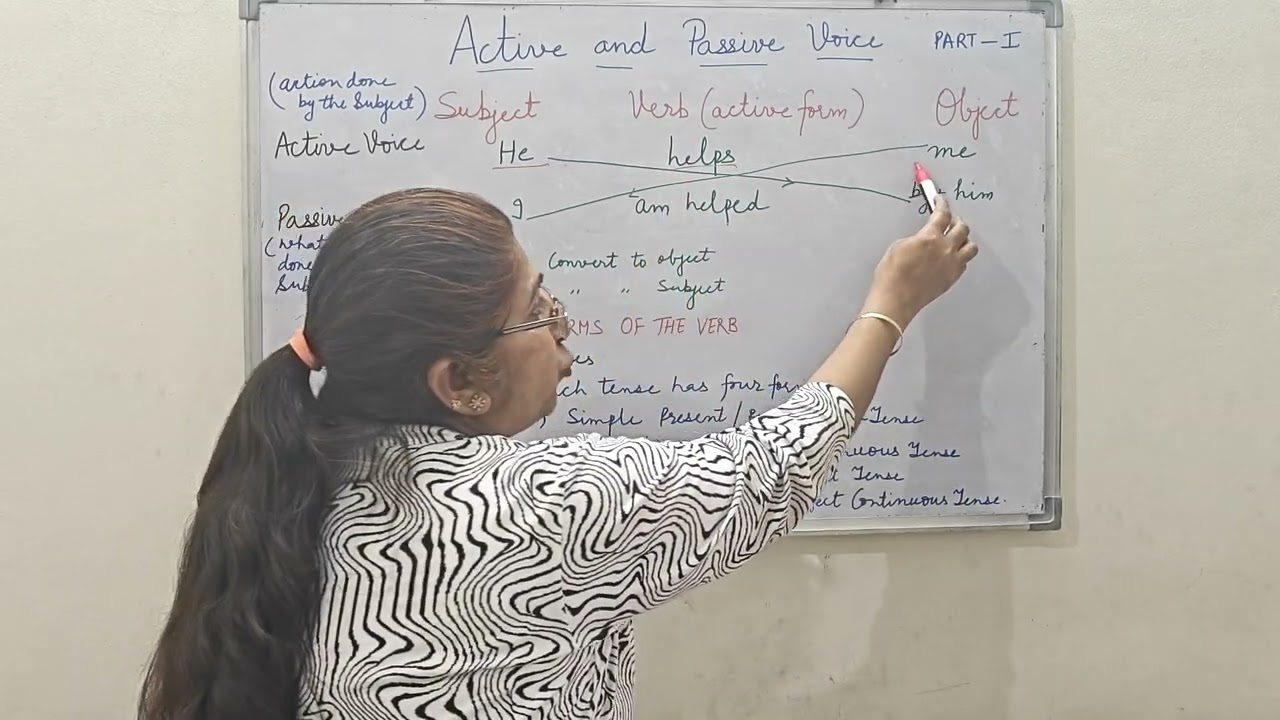 Active and Passive Voice PART-I
(action done
by the Subject) Subject Verb (active form) Object
Active Voice He helps me
Passive I am helped by him
(What
done Convert to object
Sub " " Subject
RMS OF THE VERB
es
ch tense has four for
Simple Present / -Tense
uous Tense
t Tense
ect Continuous Tense.